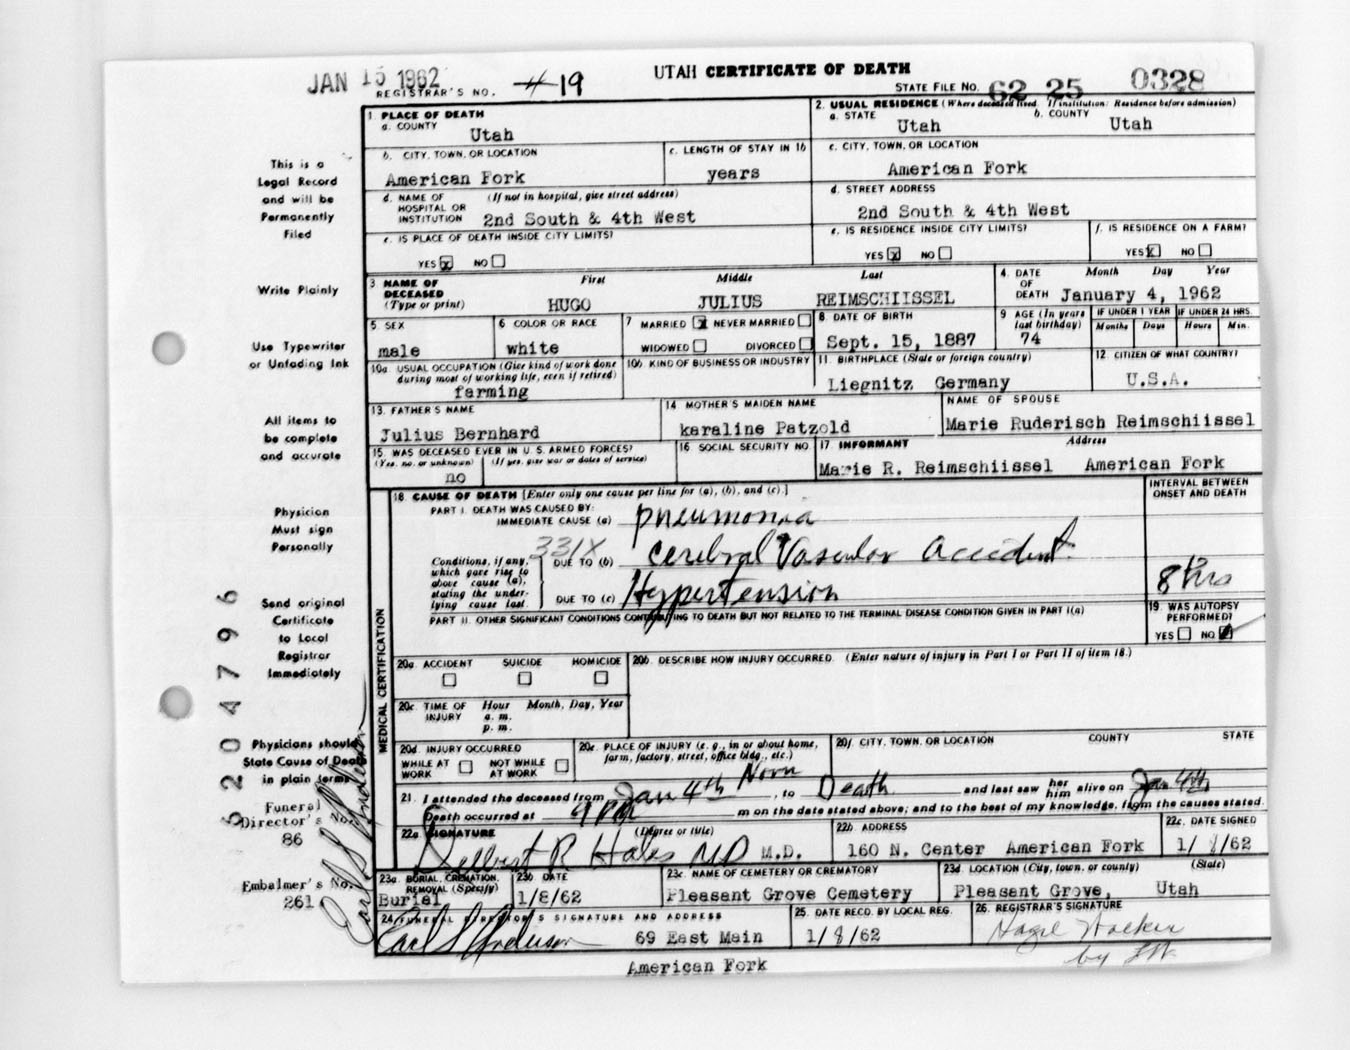 JAN 15 1962
UTAH CERTIFICATE OF DEATH
REGISTRAR'S NO. #19
STATE FILE NO. 62 25 0328
This is a
Legal Record
and will be
Permanently
Filed
Write Plainly
Use Typewriter
or Unfading Ink
All items to
be complete
and accurate
Physician
Must sign
Personally
Send original
Certificate
to Local
Registrar
Immediately
Physicians should
State Cause of Death
in plain terms
Funeral
Director's No.
86
Embalmer's No.
261
Earl S Anderson
5204796
1. PLACE OF DEATH
a. COUNTY
Utah
2. USUAL RESIDENCE (Where deceased lived. If institution: Residence before admission)
a. STATE b. COUNTY
Utah Utah
b. CITY, TOWN, OR LOCATION
American Fork
c. LENGTH OF STAY IN 1b
years
c. CITY, TOWN, OR LOCATION
American Fork
d. NAME OF HOSPITAL OR INSTITUTION (If not in hospital, give street address)
2nd South & 4th West
d. STREET ADDRESS
2nd South & 4th West
e. IS PLACE OF DEATH INSIDE CITY LIMITS?
YES x NO
e. IS RESIDENCE INSIDE CITY LIMITS?
YES x NO
f. IS RESIDENCE ON A FARM?
YES x NO
3 NAME OF DECEASED (Type or print)
First Middle Last
HUGO JULIUS REIMSCHIISSEL
4. DATE OF DEATH Month Day Year
January 4, 1962
5. SEX
male
6 COLOR OR RACE
white
7 MARRIED x NEVER MARRIED
WIDOWED DIVORCED
8 DATE OF BIRTH
Sept. 15, 1887
9 AGE (In years last birthday)
74
IF UNDER 1 YEAR
Months Days
IF UNDER 24 HRS.
Hours Min.
10a USUAL OCCUPATION (Give kind of work done during most of working life, even if retired)
farming
10b KIND OF BUSINESS OR INDUSTRY
11. BIRTHPLACE (State or foreign country)
Liegnitz Germany
12. CITIZEN OF WHAT COUNTRY?
U.S.A.
13. FATHER'S NAME
Julius Bernhard
14 MOTHER'S MAIDEN NAME
karaline Patzold
NAME OF SPOUSE
Marie Ruderisch Reimschiissel
15 WAS DECEASED EVER IN U.S. ARMED FORCES?
(Yes, no, or unknown) (If yes, give war or dates of service)
no
16 SOCIAL SECURITY NO.
17 INFORMANT Address
Marie R. Reimschiissel American Fork
MEDICAL CERTIFICATION
18. CAUSE OF DEATH [Enter only one cause per line for (a), (b), and (c).]
INTERVAL BETWEEN ONSET AND DEATH
PART I. DEATH WAS CAUSED BY:
IMMEDIATE CAUSE (a) Pneumonia
331X
Conditions, if any, which gave rise to above cause (a), stating the underlying cause last.
DUE TO (b) Cerebral Vascular Accident
DUE TO (c) Hypertension
8 hrs
PART II. OTHER SIGNIFICANT CONDITIONS CONTRIBUTING TO DEATH BUT NOT RELATED TO THE TERMINAL DISEASE CONDITION GIVEN IN PART I(a)
19. WAS AUTOPSY PERFORMED?
YES NO
20a. ACCIDENT SUICIDE HOMICIDE
20b. DESCRIBE HOW INJURY OCCURRED. (Enter nature of injury in Part I or Part II of item 18.)
20c. TIME OF INJURY Hour Month, Day, Year
a. m.
p. m.
20d. INJURY OCCURRED
WHILE AT WORK NOT WHILE AT WORK
20e. PLACE OF INJURY (e. g., in or about home, farm, factory, street, office bldg., etc.)
20f. CITY, TOWN, OR LOCATION COUNTY STATE
21. I attended the deceased from Jan 4th Noon, to Death and last saw her him alive on Jan 4th
Death occurred at 9 PM m on the date stated above; and to the best of my knowledge, from the causes stated.
22a. SIGNATURE (Degree or title)
Delbert R Hales MD M.D.
22b. ADDRESS
160 N. Center American Fork
22c. DATE SIGNED
1/8/62
23a. BURIAL, CREMATION, REMOVAL (Specify)
Burial
23b. DATE
1/8/62
23c. NAME OF CEMETERY OR CREMATORY
Pleasant Grove Cemetery
23d. LOCATION (City, town, or county) (State)
Pleasant Grove, Utah
24 FUNERAL DIRECTOR'S SIGNATURE AND ADDRESS
Earl S Anderson 69 East Main
American Fork
25. DATE RECD. BY LOCAL REG.
1/8/62
26. REGISTRAR'S SIGNATURE
Hazel Walker
by